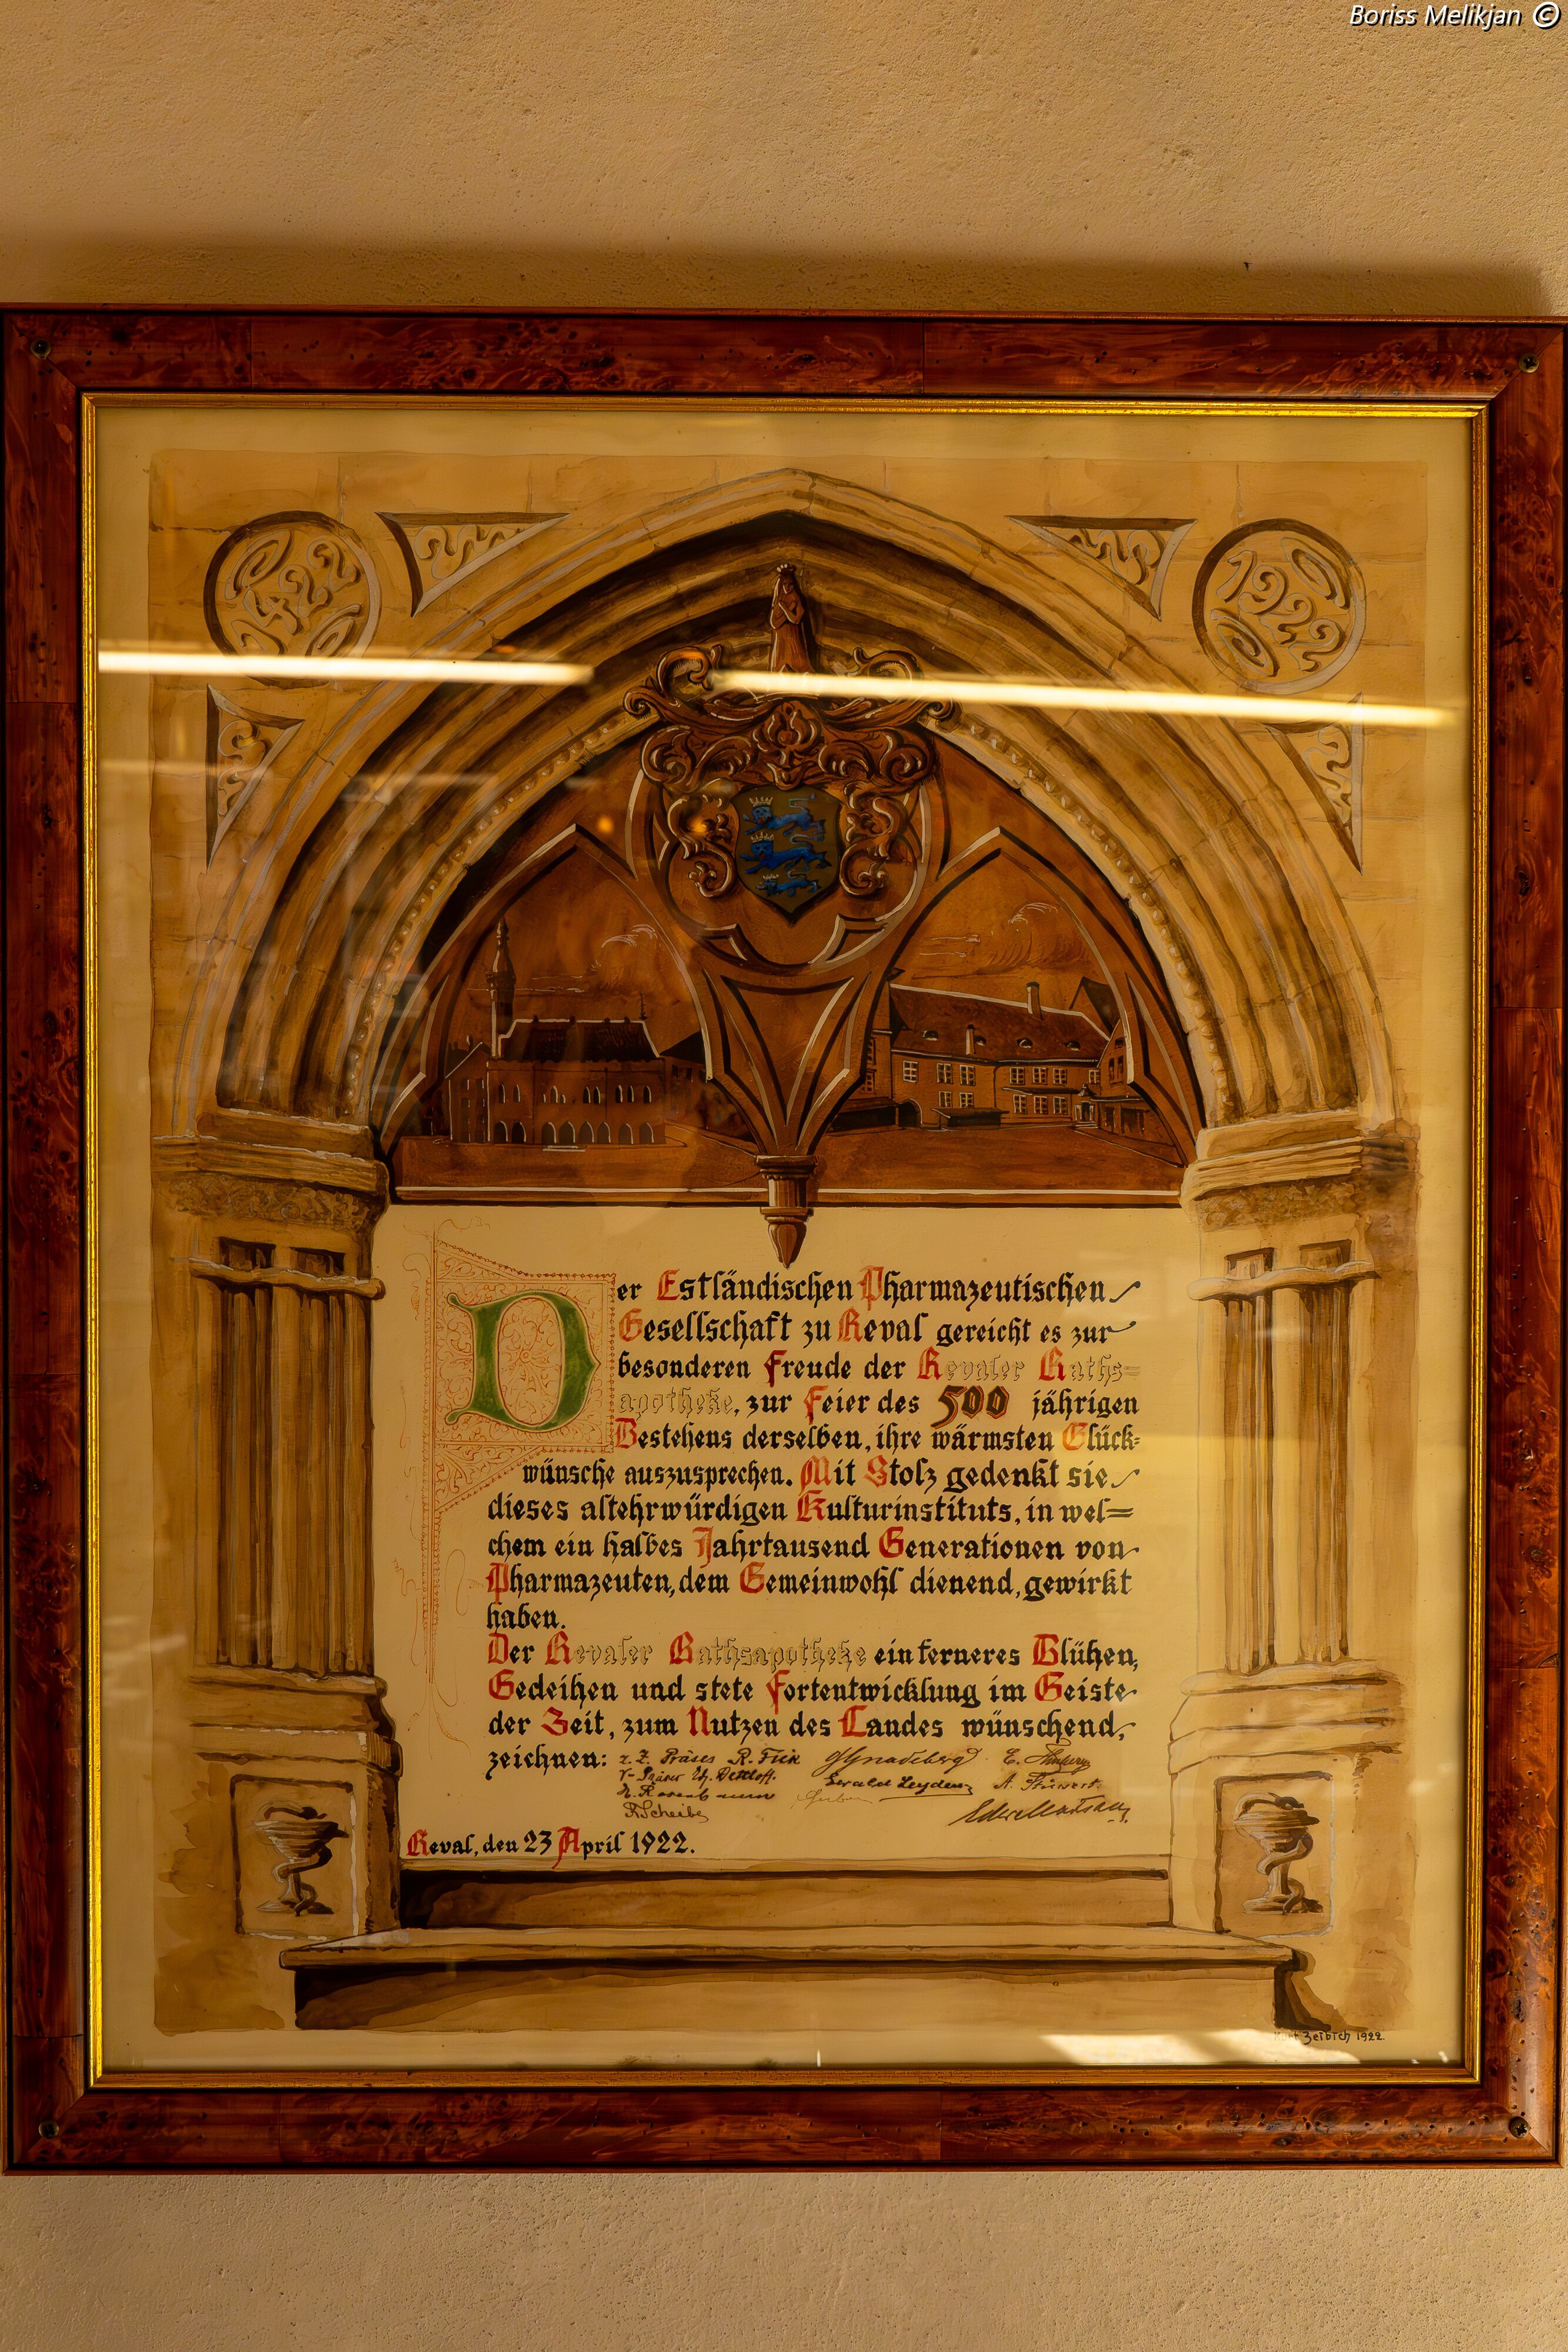 Boriss Melikjan ©
1422
1922
Der Estländischen Pharmazeutischen
Gesellschaft zu Reval gereicht es zur
besonderen Freude der Revaler Raths-
apotheke, zur Feier des 500 jährigen
Bestehens derselben, ihre wärmsten Glück-
wünsche auszusprechen. Mit Stolz gedenkt sie
dieses altehrwürdigen Kulturinstituts, in wel-
chem ein halbes Jahrtausend Generationen von
Pharmazeuten, dem Gemeinwohl dienend, gewirkt
haben.
Der Revaler Rathsapotheke ein ferneres Blühen,
Gedeihen und stete Fortentwicklung im Geiste
der Zeit, zum Nutzen des Landes wünschend,
zeichnen: z. Z. Präses R. Fick
Dehloff.
Ewald Leyden
R. Scheibe
Reval, den 23 April 1922.
Kurt Zeibich 1922.